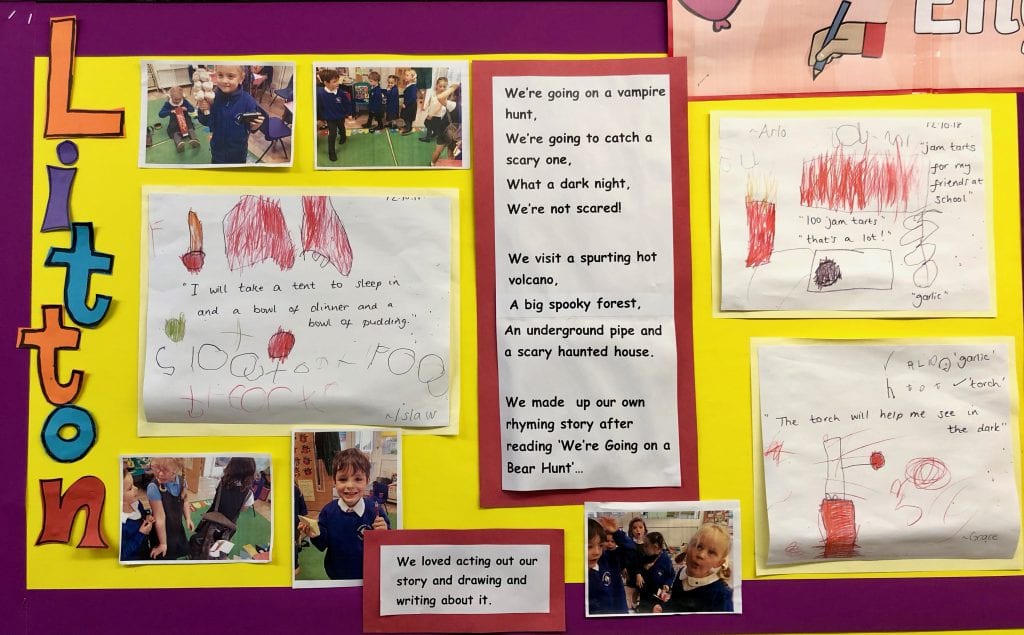 Litton
We're going on a vampire
hunt,
We're going to catch a
scary one,
What a dark night,
We're not scared!
We visit a spurting hot
volcano,
A big spooky forest,
An underground pipe and
a scary haunted house.
We made up our own
rhyming story after
reading 'We're Going on a
Bear Hunt'...
We loved acting out our
story and drawing and
writing about it.
12.10.18
"I will take a tent to sleep in
and a bowl of dinner and a
bowl of pudding."
~Islaw
~Arlo
12.10.18
"jam tarts
for my
friends at
school"
"100 jam tarts"
"that's a lot!"
"garlic"
'garlic'
'torch'
"The torch will help me see in
the dark"
~Grace